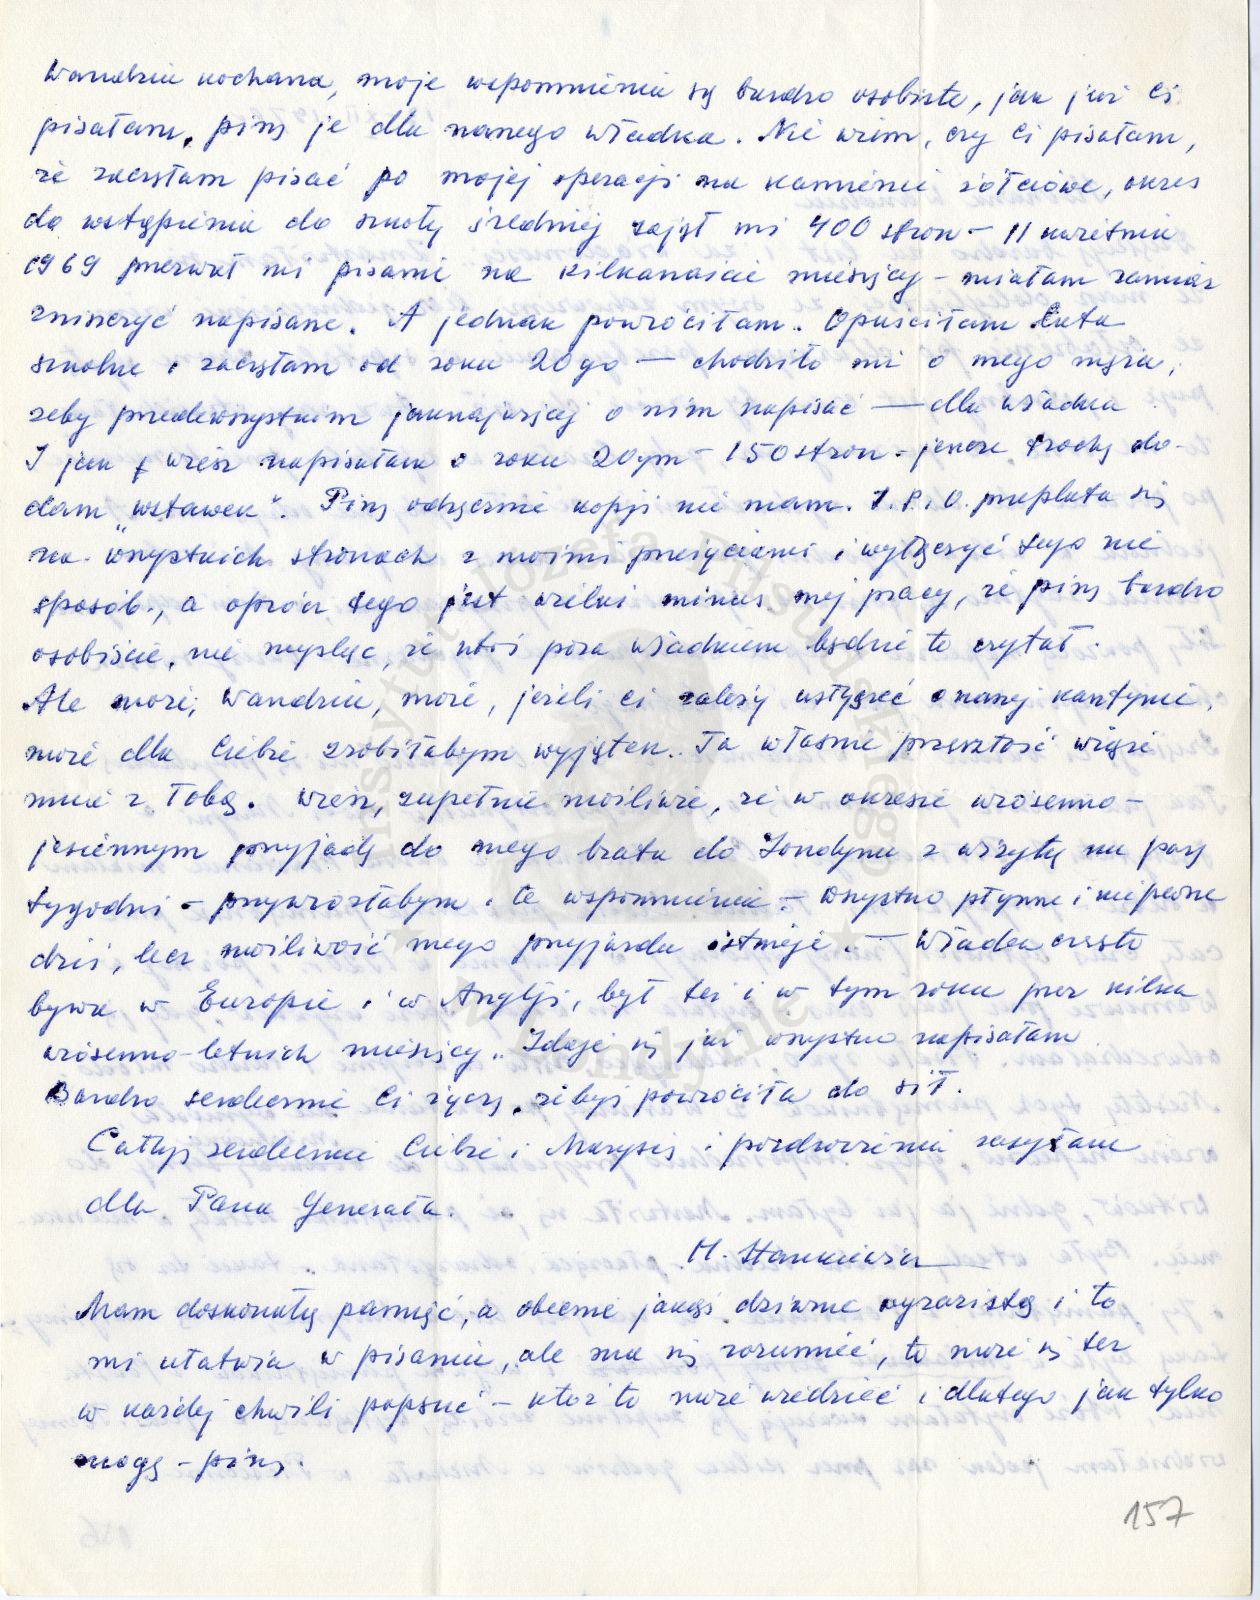 Wandziu kochana, moje wspomnienia są bardzo osobiste, jak już Ci
pisałam, piszę je dla naszego Władka. Nie wiem, czy Ci pisałam,
że zaczęłam pisać po mojej operacji na kamienie żółciowe, okres
do wstąpienia do szkoły średniej zajął mi 400 stron – 11 kwietnia
1969 przerwał mi pisanie na kilkanaście miesięcy – miałam zamiar
zniszczyć napisane. A jednak powróciłam. Opuściłam lata
szkolne i zaczęłam od roku 20go — chodziło mi o mego męża,
żeby przedewszystkim jaknajwięcej o nim napisać — dla Władka.
I jak wiesz napisałam o roku 20ym – 150 stron – jeszcze trochę do-
dam „wstawek". Piszę odręcznie kopji nie mam. J.P. i O. przeplata się
na wszystkich stronach z moimi przeżyciami i wyłączyć tego nie
sposób, a oprócz tego jest wielki minus mej pracy, że piszę bardzo
osobiście, nie myśląc, że ktoś poza Władkiem będzie to czytał.
Ale może, Wandziu, może, jeżeli Ci zależy usłyszeć o naszej kantynie,
może dla Ciebie zrobiłabym wyjątek. Ta właśnie przeszłość wiąże
mnie z Tobą. Wiesz, zupełnie możliwe, że w okresie wiosenno-
jesiennym przyjadę do mego brata do Londynu z wizytą na parę
tygodni – przywiozłabym i te wspomnienia – wszystko płynne i niepewne
dziś, lecz możliwość mego przyjazdu istnieje. – Władka często
bywa w Europie i w Anglji, był też i w tym roku przez kilka
wiosenno-letnich miesięcy. Zdaje się już wszystko napisałam.
Bardzo serdecznie Ci życzę, żebyś powróciła do sił.
Całuję serdecznie Ciebie i Marysię i pozdrowienia zasyłam
dla Pana Generała.
H. Stankiewicz
Mam doskonałą pamięć, a obecnie jakąś dziwnie wyrazistą i to
mi ułatwia w pisaniu, ale ma się rozumieć, to może się też
w każdej chwili popsuć – któż to może wiedzieć i dlatego jak tylko
mogę – piszę.
157
Instytut Józefa Piłsudskiego
w Londynie